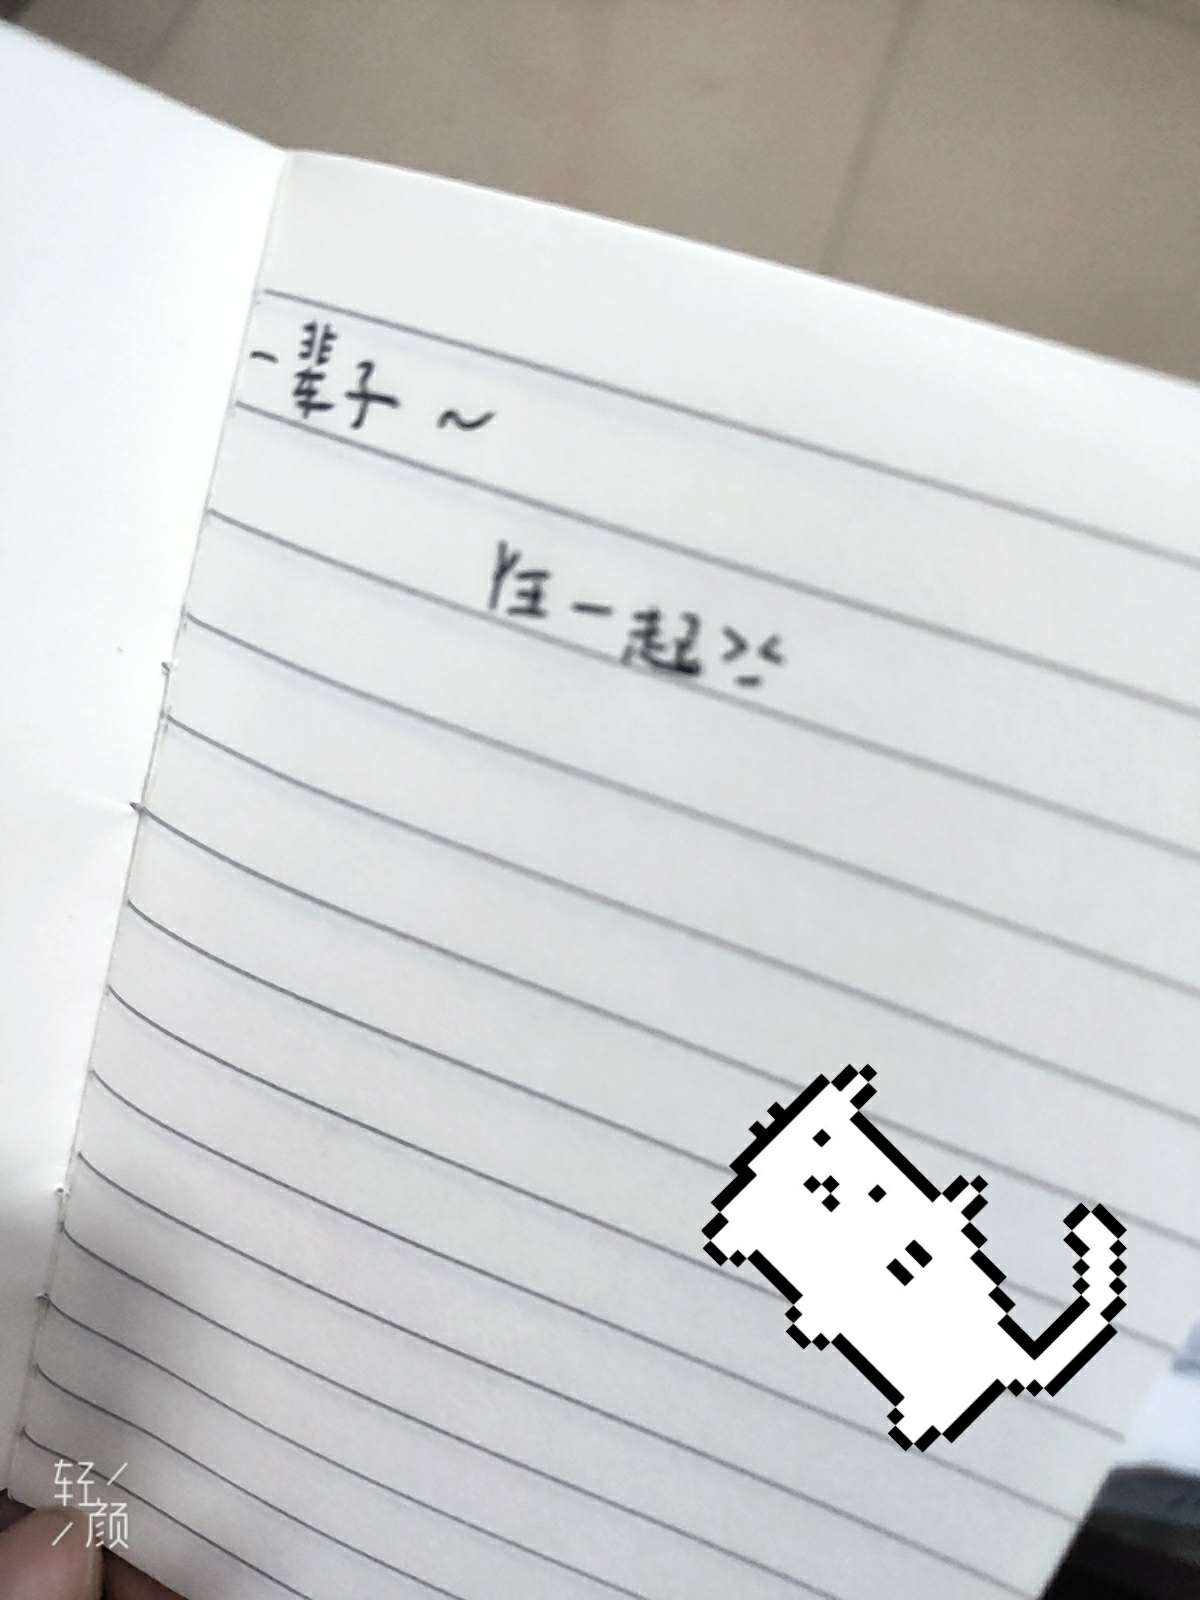 一辈子 ~
在一起>_<
轻
颜